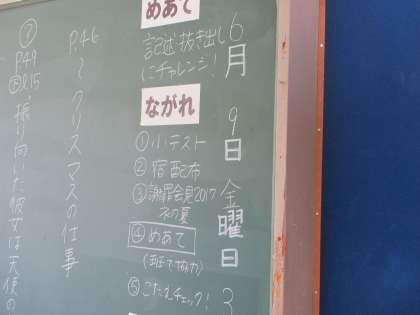 6月9日金曜日3
めあて
記述・抜き出し
にチャレンジ!
ながれ
①小テスト
②宿配布
③謝罪会見2017
ネの夏
④めあて
(班で協力)
⑤こたえチェック!
P.46～クリスマスの仕事
⑦
P49
振り向いた彼女は天使の